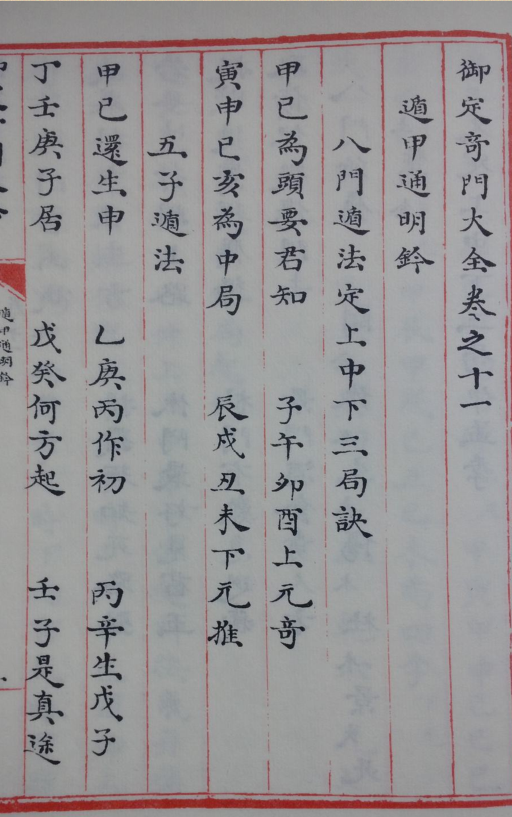 御定奇門大全卷之十一
遁甲通明鈐
八門遁法定上中下三局訣
甲已為頭要君知　子午卯酉上元奇
寅申已亥為中局　辰戌丑未下元推
五子遁法
甲已還生申　乙庚丙作初　丙辛生戊子
丁壬庚子居　戊癸何方起　壬子是真途
遁甲通明鈐